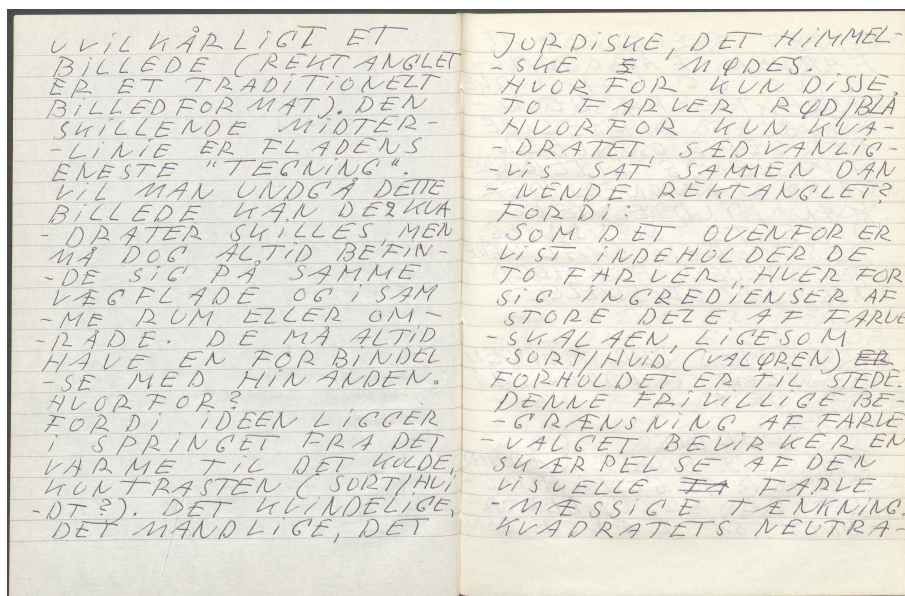 UVILKÅRLIGT ET
BILLEDE (REKTANGLET
ER ET TRADITIONELT
BILLEDFORMAT). DEN
SKILLENDE MIDTER-
-LINIE ER FLADENS
ENESTE "TEGNING".
VIL MAN UNDGÅ DETTE
BILLEDE KAN DE 2 KVA
-DRATER SKILLES, MEN
MÅ DOG ALTID BEFIN-
-DE SIG PÅ SAMME
VÆGFLADE OG I SAM
-ME RUM ELLER OM-
-RÅDE. DE MÅ ALTID
HAVE EN FORBINDEL
-SE MED HINANDEN.
HVORFOR?
FORDI IDEEN LIGGER
I SPRINGET FRA DET
VARME TIL DET KOLDE,
KONTRASTEN (SORT/HVI
-DT?). DET KVINDELIGE,
DET MANDLIGE, DET
JORDISKE, DET HIMMEL-
-SKE MØDES.
HVORFOR KUN DISSE
TO FARVER RØD/BLÅ
HVORFOR KUN KVA-
-DRATET, SÆDVANLIG-
-VIS SAT SAMMEN DAN
-NENDE REKTANGLET?
FORDI:
SOM DET OVENFOR ER
VIST INDEHOLDER DE
TO FARVER, HVER FOR
SIG INGREDIENSER AF
STORE DELE AF FARVE
-SKALAEN, LIGESOM
SORT/HVID (VALØREN) ER
FORHOLDET ER TIL STEDE.
DENNE FRIVILLIGE BE-
-GRÆNSNING AF FARVE
-VALGET BEVIRKER EN
SKÆRPELSE AF DEN
VISUELLE FA FARVE
-MÆSSIGE TÆNKNING.
KVADRATETS NEUTRA-